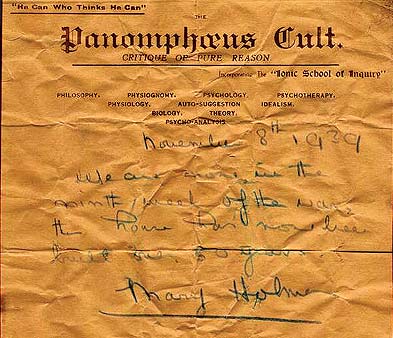 "He Can Who Thinks He Can"
THE
Panomphœus Cult.
CRITIQUE OF PURE REASON
Incorporating The "Ionic School of Inquiry"
PHILOSOPHY. PHYSIOGNOMY. PSYCHOLOGY. PSYCHOTHERAPY.
PHYSIOLOGY. AUTO-SUGGESTION IDEALISM.
BIOLOGY. THEORY.
PSYCHO-ANALYSIS
November 8th 1939
We are now in the
ninth week of the war
the house has now been
built 50 years.
Mary Holmes